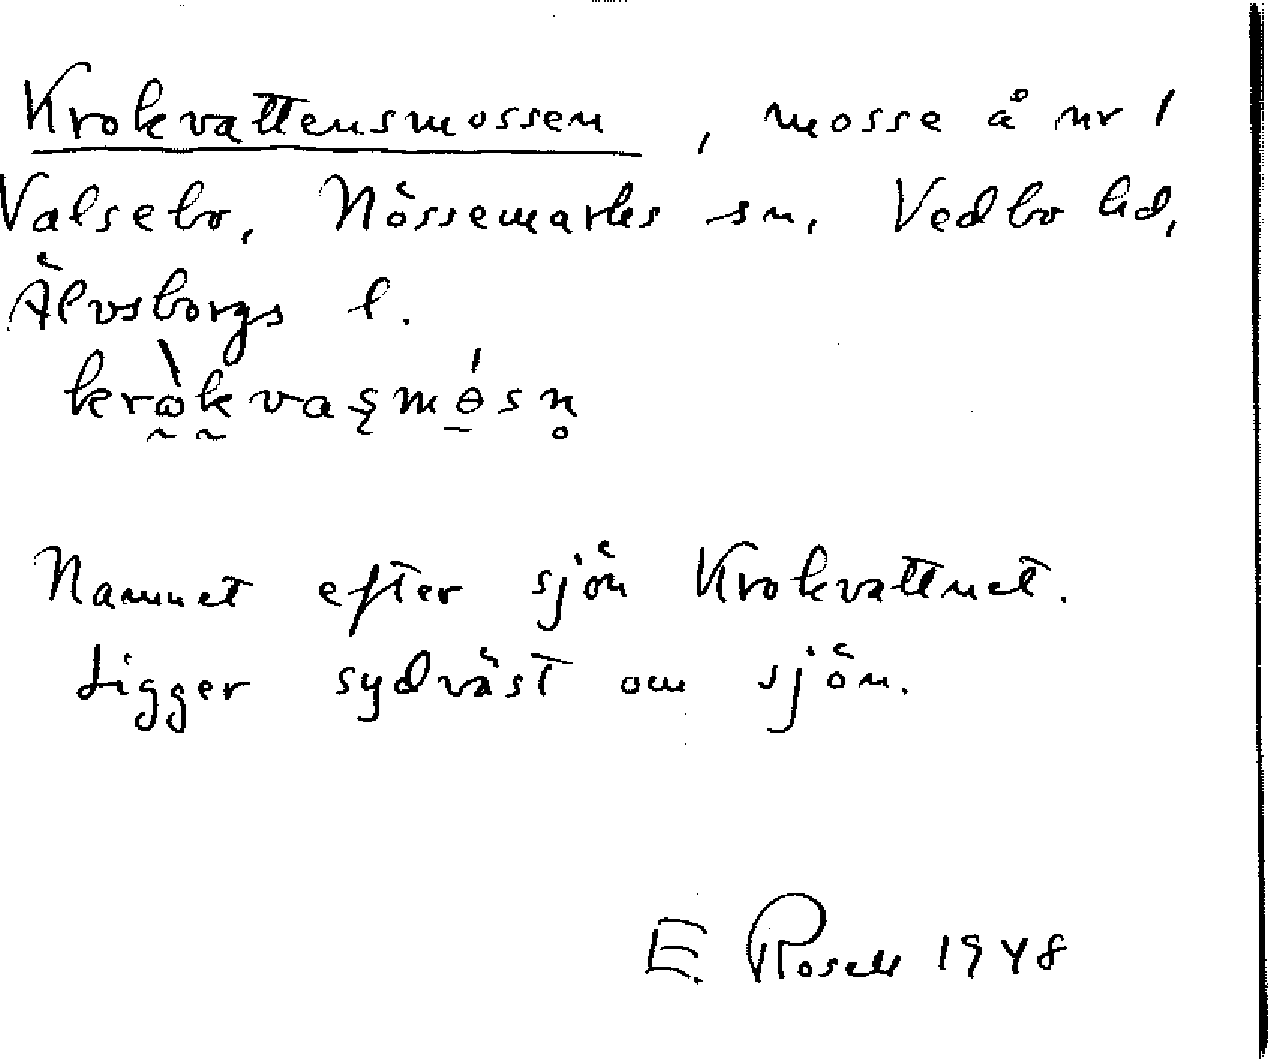 Krokvattensmossen, mosse å nr 1
Valsebo, Nössemarks sn, Vedbo hd,
Älvsborgs l.
Namnet efter sjön Krokvattnet.
Ligger sydväst om sjön.
E. Rosell 1948